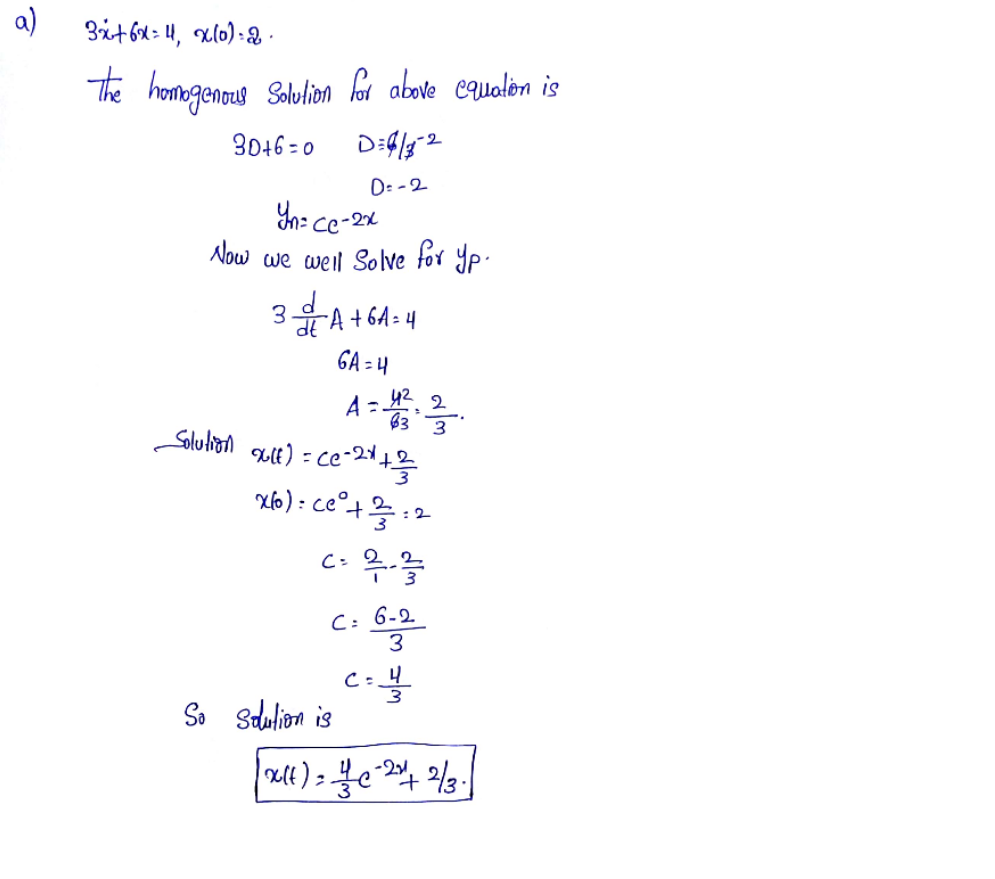 a) 3ẋ+6x=4, x(0)=2.
The homogenous Solution for above equation is
3D+6=0 D=6/3-2
D=-2
yn=ce-2x
Now we well Solve for yp.
3 d/dt A + 6A=4
6A=4
A = 42/63 = 2/3.
Solution x(t) = ce-2x+2/3
x(0) = ce⁰+2/3 = 2
C= 2/1-2/3
C= 6-2/3
C= 4/3
So solution is
x(t) = 4/3e⁻²ˣ+2/3.